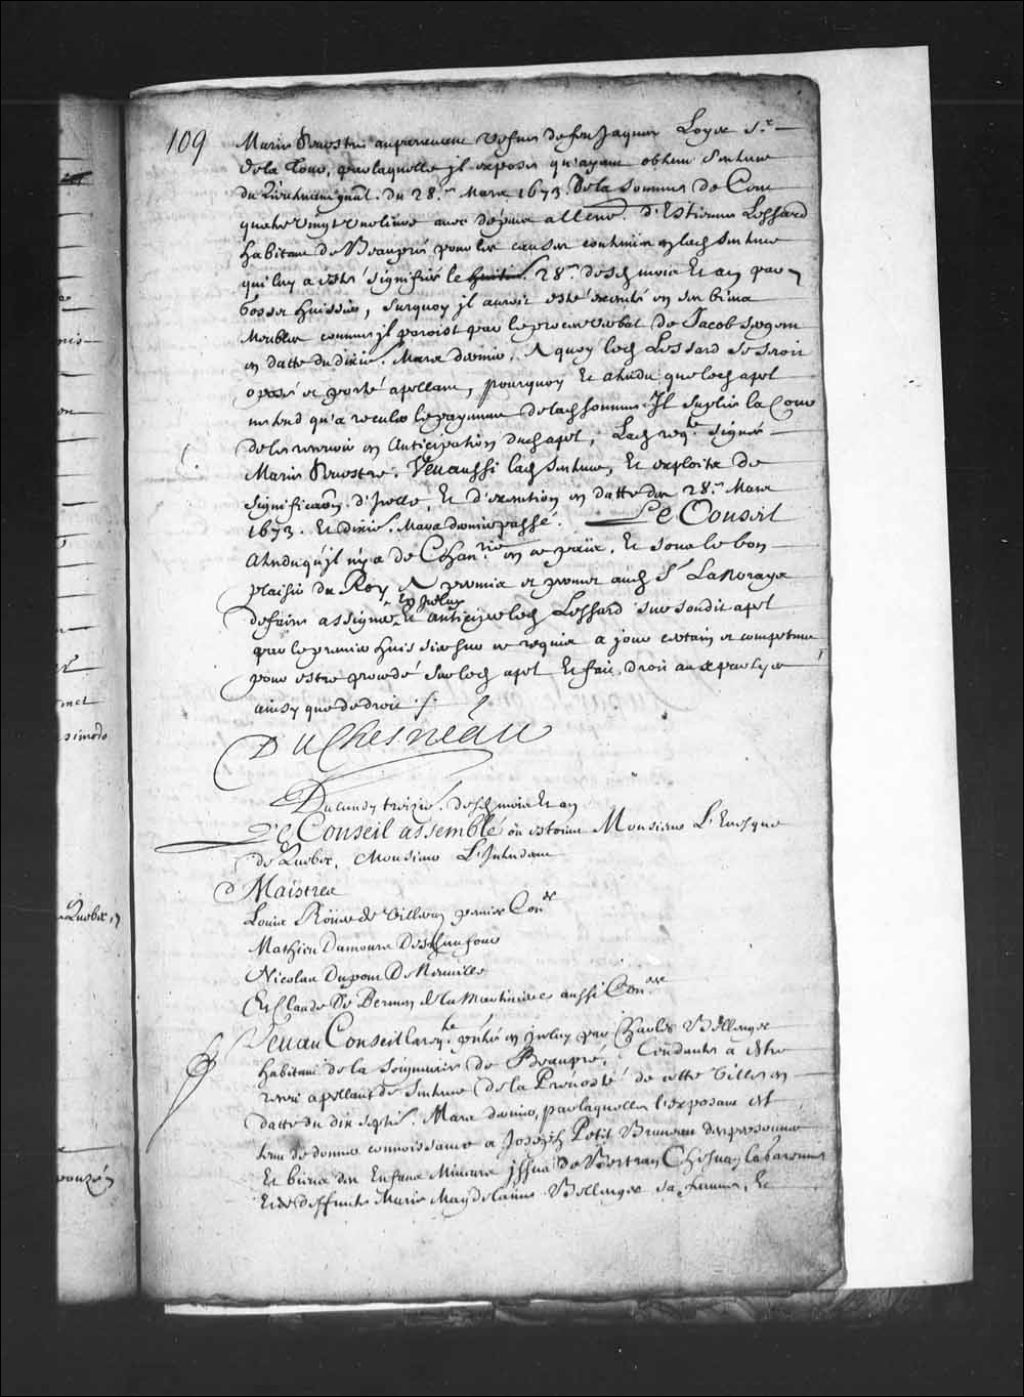 109
Marie Senestre auparavant vefue de feu Jaques Loyer Sr.
de la Tour, par laquelle jl expose qu'ayant obtenu Sentence
du Lieutenant gnal. du 28.e Mars 1673. De la somme de Cent
quatre vingt une liures auec despens allenc. d'Estienne Lessard
habitant de Beaupré pour les causes contenües en lad. Sentence
qui luy a esté signifiée le 28.e desd. mois Et an par
Gosset huissier, surquoy jl auroit esté executé en ses biens
Meubles comme jl paroist par le procez verbal de Jacob
en datte du dixie. Mars dernier, A quoy led. Lessard se seroit
oposé et porté apellant, pourquoy Et attendu que led. apel
ne tend qu'a reculer le payement de lad. somme. Il suplie la Cour
de le receuoir en Anticipation dud. apel, Lad. reqte. signée
Marie Senestre. Veu aussi lad. Sentence, Et exploits de
signification d'Jcelle, Et d'execution en datte des 28.e Mars
1673. Et dixie. Mars dernier passé. Le Conseil
Attendu qu'jl n'y a de Chanrie en ce païs, Et sous le bon
plaisir du Roy A permis et permet aud. Sr. La Noraye
Et Jceluy
de faire assigner Et anticiper led. Lessard sur sondit apel
par le premier huissier sur ce requis a jour certain et competent
pour estre procedé sur led. apel Et fait droit aux parties
ainsy que de droit ./.
DuChesneau
Du Lundy treizie. desd. mois Et an
Le Conseil assemblé où estoient Monsieur L'Euesque
de Quebec, Monsieur L'Jntendant
Maistres
Louis Roüer de Villeray premier Coner
Mathieu Damours Deschaufour
Nicolas Dupont De Neuuille
Et Claude De Bermen de la Martiniere aussi Coners
Veu au Conseil la reqte. pntée en jceluy par Charles Bellenger
habitant de la Seigneurie de Beaupré, Tendante a estre
receu apellant de Sentence de la Preuosté de cette Ville en
datte du dix septie. Mars dernier, par laquelle l'exposant est
tenu de donner connoissance a Joseph Petit Bruneau des personnes
Et biens des Enfans Mineurs jssus de Bertran Chesnay La Garenne
Et de deffunte Marie Magdelaine Bellenger sa femme, Et